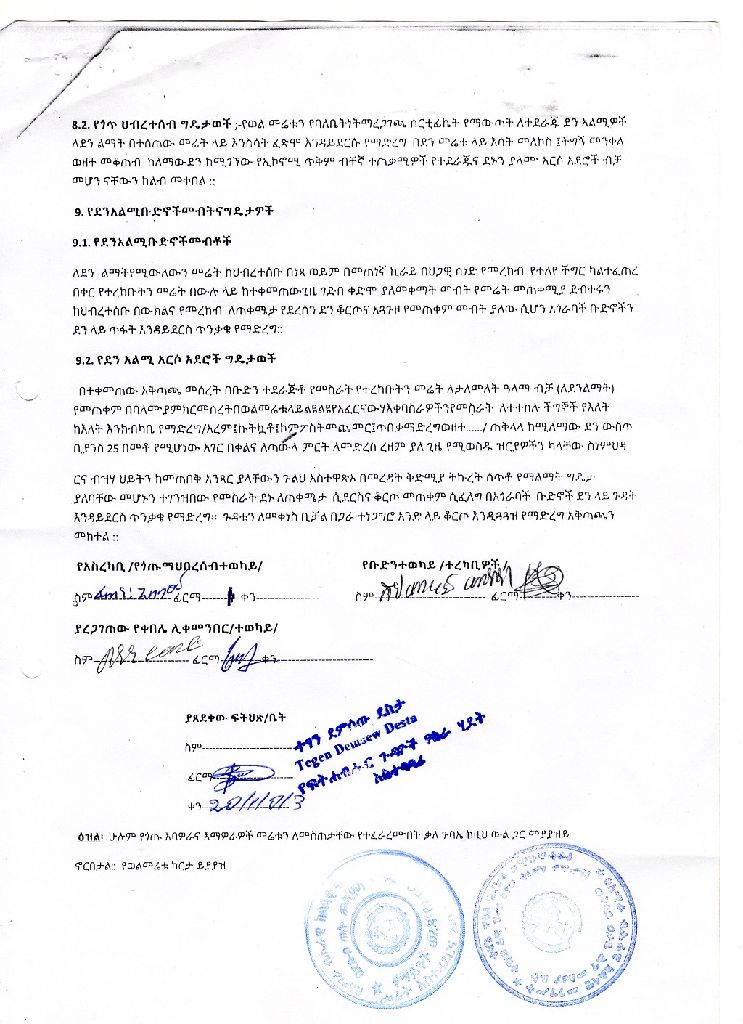 8.2. የጎጥ ህብረተሰብ ግዴታወች ;-የወል መሬቱን የባለቤትነትማረጋገጫ ሰርቲፊኬት የማውጣት ለተደራጁ ደን አልሚዎች
ለደን ልማት በተሰጠው መሬት ላይ እንስሳት ፈጽሞ እንዳይደርሱ የማድረግ በደን መሬቱ ላይ እሳት መለኮስ ፤ችግኝ መንቀል
ወዘተ መቆጠብ ከለማውደን ከሚገኘው የኢኮኖሚ ጥቅም ብቸኛ ተጠቃሚዎች የተደራጁና ደኑን ያለሙ አርሶ አደሮች ብቻ
መሆን ናቸውን ከልብ መቀበል ፡፡
9. የደንአልሚቡድኖችመብትናግዴታዎች
9.1. የደንአልሚቡድኖችመብቶች
ለደን ልማትየሚውለውን መሬት ከህብረተሰቡ በነጻ ወይም በመጠነኛ ኪራይ በህጋዊ ሰነድ የመረከብ የተለየ ችግር ካልተፈጠረ
በቀር የተረከቡትን መሬት በውሉ ላይ ከተቀመጠውጊዜ ገደብ ቀድሞ ያለመቀማት መብት የመሬት መጠቀሚያ ደብተሩን
ከህብረተሰቡ በውክልና የመረከብ ለጠቀሜታ የደረሰን ደን ቆርጦና አጓጉዞ የመጠቀም መብት ያለው ሲሆን አጎራባች ቡድኖችን
ደን ላይ ጥፋት እንዳይደርስ ጥንቃቄ የማድረግ፡፡
9.2. የደን አልሚ አርሶ አደሮች ግዴታወች
በተቀመጠው አቅጣጫ መሰረት በቡድን ተደራጅቶ የመስራት የተረከቡትን መሬት ለታለመለት ዓላማ ብቻ (ለደንልማት)
የመጠቀም በባለሙያምክርመሰረትበወልመሬቱላይልዩልዩየአፈርናውሃእቀባስራዎችንየመስራት ለተተከሉ ችግኞች የእለት
ከእለት እንክብካቤ የማድረግ/አረም፤ኩትኳቶ፤ኮምፖስትመጨመር፤ጥበቃማድረግወዘተ....../ ጠቅላላ ከሚለማው ደን ውስጥ
ቢያንስ 25 በመቶ የሚሆነው አገር በቀልና ለጣውላ ምርት ለመድረስ ረዘም ያለ ጊዜ የሚወስዱ ዝርያዎችን ካላቸው ስነምህዳ
ርና ብዝሃ ህይትን ከመጠበቅ አንጻር ያላቸውን ጉልህ አስተዋጽኦ በመረዳት ቅድሚያ ትኩረት ሰጥቶ የማልማት ግዴታ
ያለባቸው መሆኑን ተገንዝበው የመስራት ደኑ ለጠቀሜታ ሲደርስና ቆርጦ መጠቀም ሲፈለግ በአጎራባች ቡድኖች ደን ላይ ጉዳት
እንዳይደርስ ጥንቃቄ የማድረግ፡፡ ጉዳቱን ለመቀነስ ቢቻል በጋራ ተነጋግሮ አንድ ላይ ቆርጦ እንዲጓጓዝ የማድረግ አቅጣጫን
መከተል ፡፡
የአስረካቢ /የጎጡማህበረሰብተወካይ/ የቡድንተወካይ /ተረካቢዎች/
ስም ፊርማ ቀን ስም ፊርማ ቀን
ያረጋገጠው የቀበሌ ሊቀመንበር/ተወካይ/
ስም ፊርማ ቀን
ያጸደቀው ፍትህጽ/ቤት
ስም
ተገን ደምሰው ደስታ
Tegen Demsew Desta
ፊርማ
ቀን
ዕዝል፡ ሁሉም የጎጡ አባዎራና እማዎሪዎች መሬቱን ለመስጠታቸው የተፈራረሙበት ቃለ ጉባኤ ከዚህ ውል ጋር መያያዝይ
ኖርበታል፡፡ የወልመሬቱ ካርታ ይያያዝ